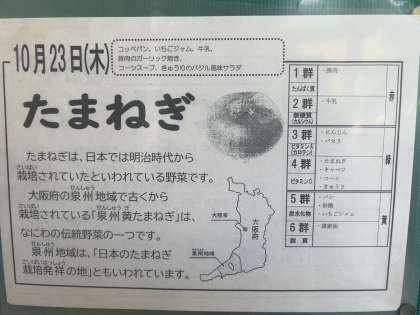 10月23日(木)
コッペパン、いちごジャム、牛乳、
豚肉のガーリック焼き、
コーンスープ、きゅうりのバジル風味サラダ
たまねぎ
たまねぎは、日本では明治時代から
さいばい
栽培されていたといわれている野菜です。
せんしゅう
大阪府の泉州地域で古くから
さいばい せんしゅう き
栽培されている「泉州黄たまねぎ」は、
なにわの伝統野菜の一つです。
せんしゅう
泉州地域は、「日本のたまねぎ
さいばいはっしょう
栽培発祥の地」ともいわれています。
大阪湾
大阪府
泉州地域
1群
たんぱく質
・豚肉
2群
無機質
(カルシウム)
・牛乳
3群
ビタミンA
(カロテン)
・にんじん
・パセリ
4群
ビタミンC
・たまねぎ
・キャベツ
・コーン
・きゅうり
5群
炭水化物
・パン
・砂糖
・いちごジャム
6群
脂質
赤
緑
黄